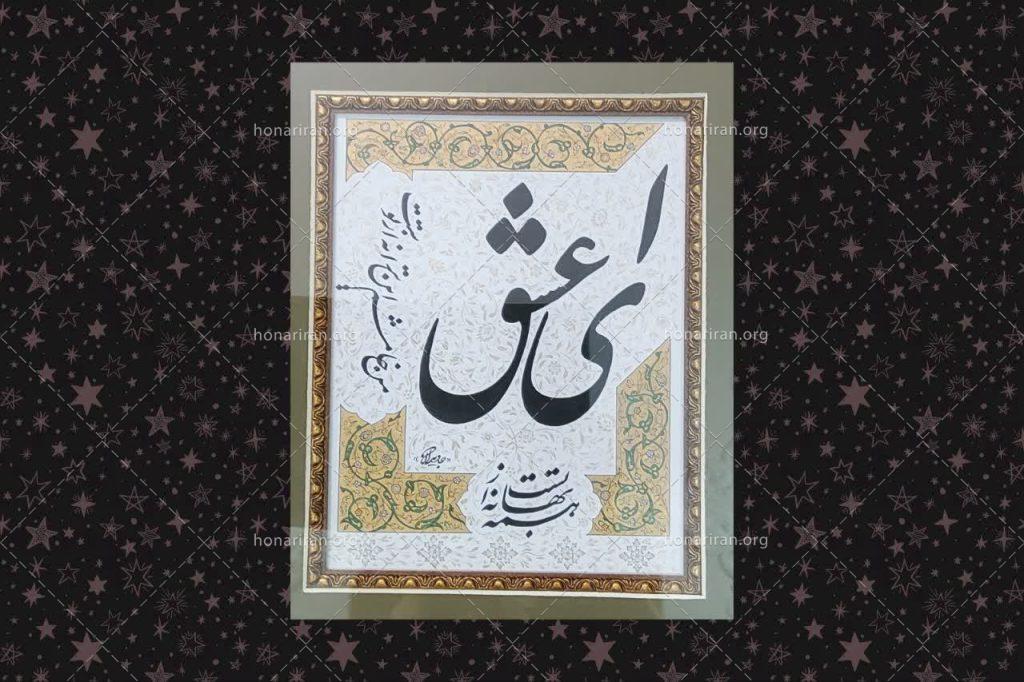 honariran.org honariran.org
ای عشق
همه بهانه از تست
من خامشم این ترانه از تست
honariran.org honariran.org
honariran.org honariran.org